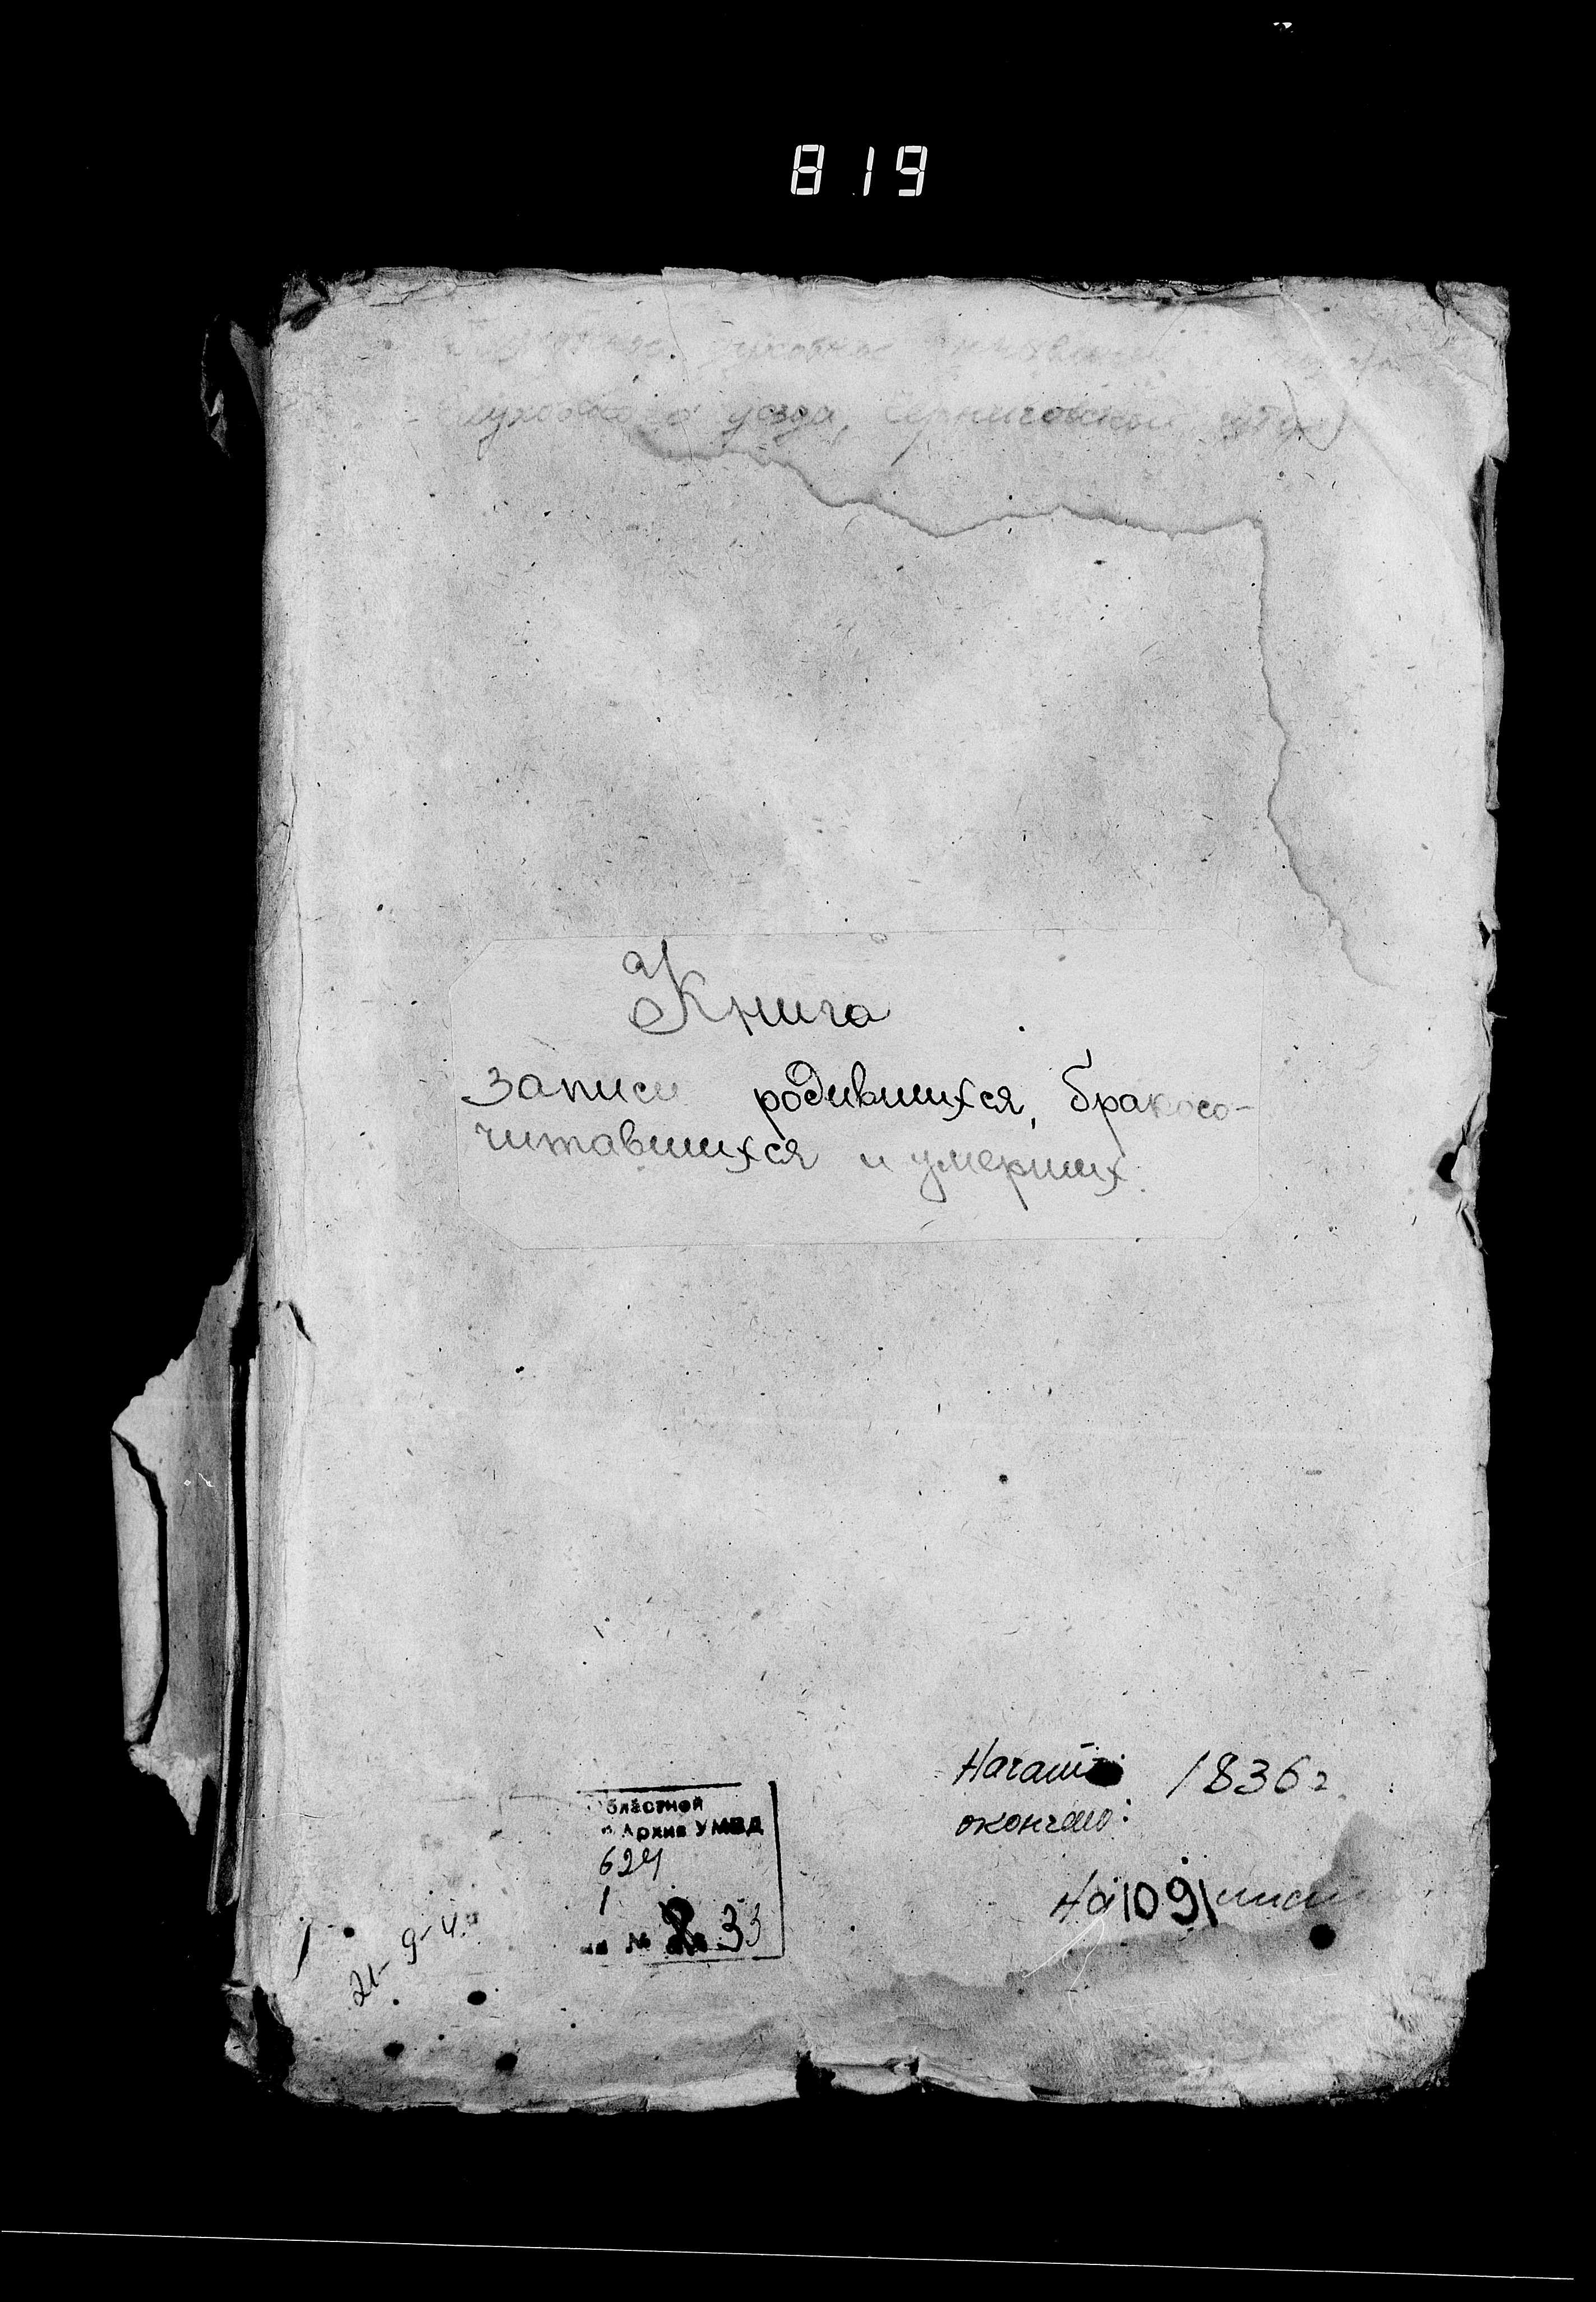 819
духовное
Глуховского уезда, Черниговской губ.
Книга
записи родившихся, бракосо-
читавшихся и умерших.
Начато: 1836 г
окончено:
На 109 лист
бластной
Архив УМВД
624
1
№ 33
21-9-4